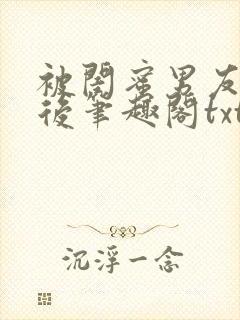 被闺蜜男友
后筆趣阁txt
沉浮一念